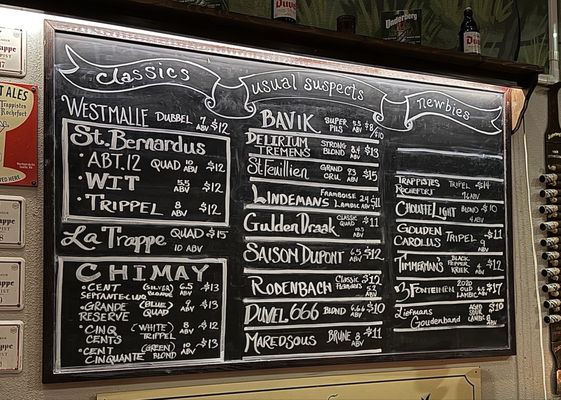 CLASSICS
WESTMALLE DUBBEL 7 ABV $12
St. Bernardus
• ABT. 12 QUAD 10 ABV $12
• WIT 5.5 ABV $12
• TRIPPEL 8 ABV $12
LA TRAPPE QUAD $15
10 ABV
CHIMAY
• CENT SEPTANTE-CINQ (SILVER) BLOND 6.5 ABV $13
• GRANDE RESERVE (BLUE) QUAD 9 ABV $13
• CINQ CENTS (WHITE) TRIPPEL 8 ABV $12
• CENT CINQUANTE (GREEN) BLOND 10 ABV $13
USUAL SUSPECTS
BAVIK SUPER PILS 5.5 ABV $8/10
DELIRIUM TREMENS STRONG BLOND 8.4 ABV $13
St. Feuillien GRAND CRU $15
LINDEMANS FRAMBOISE LAMBIC $11
Gulden Draak CLASSIC 10.5 ABV $11
SAISON DUPONT 6.5 ABV $12
RODENBACH CLASSIC $12
5.2 ABV
DUVEL 666 BLOND 6.66 ABV $10
MAREDSOUS BRUNE 8 ABV $11
NEWBIES
TRAPPISTES ROCHEFORT TRIPEL $14
CHOUFFE LIGHT BLOND 4 ABV $10
GOUDEN CAROLUS TRIPEL 9 ABV $11
TIMMERMAN'S BLACK PEPPER KRIEK 4 ABV $12
3 FONTEINEN 2020 OUD LAMBIC $17
Liefmans Goudenband SOUR 8 ABV $10
TRAPPE
ALES
Trappistes Rochefort
HERE
Duvel